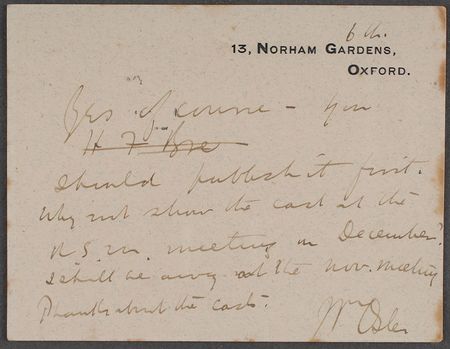 6th.
13, NORHAM GARDENS,
OXFORD.
Yes of course — you
should publish it first.
Why not show the cast at the
R.S.M. meeting in December?
I shall be away at the Nov. meeting
Thanks about the casts.
Wm Osler